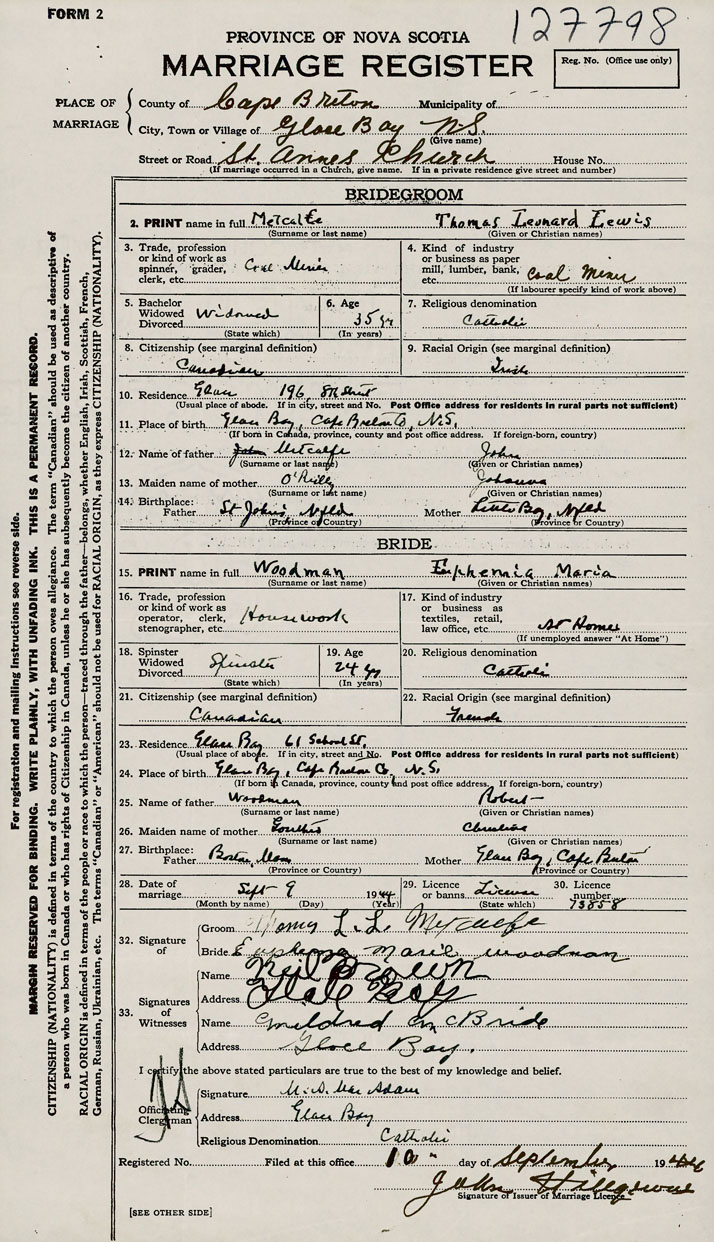 FORM 2
127798
PROVINCE OF NOVA SCOTIA
MARRIAGE REGISTER
Reg. No. (Office use only)
PLACE OF MARRIAGE
County of Cape Breton Municipality of
City, Town or Village of Glace Bay N.S.
(Give name)
Street or Road St. Annes Church House No.
(If marriage occurred in a Church, give name. If in a private residence give street and number)
BRIDEGROOM
2. PRINT name in full Metcalfe Thomas Leonard Lewis
(Surname or last name) (Given or Christian names)
3. Trade, profession or kind of work as spinner, grader, clerk, etc. Coal Miner
4. Kind of industry or business as paper mill, lumber, bank, etc. Coal Miner
(If labourer specify kind of work above)
5. Bachelor Widowed Divorced Widowed
(State which)
6. Age 35 yr
(In years)
7. Religious denomination
Catholic
8. Citizenship (see marginal definition)
Canadian
9. Racial Origin (see marginal definition)
Irish
10. Residence Glace 196, 8th Street
(Usual place of abode. If in city, street and No. Post Office address for residents in rural parts not sufficient)
11. Place of birth Glace Bay, Cape Breton Co, N.S.
(If born in Canada, province, county and post office address. If foreign-born, country)
12. Name of father John Metcalfe John
(Surname or last name) (Given or Christian names)
13. Maiden name of mother O'Reilly Johanna
(Surname or last name) (Given or Christian names)
14. Birthplace: Father St John's, Nfld Mother Little Bay, Nfld
(Province or Country) (Province or Country)
BRIDE
15. PRINT name in full Woodman Euphemia Maria
(Surname or last name) (Given or Christian names)
16. Trade, profession or kind of work as operator, clerk, stenographer, etc. Housework
17. Kind of industry or business as textiles, retail, law office, etc. At Home
(If unemployed answer "At Home")
18. Spinster Widowed Divorced Spinster
(State which)
19. Age 24 yr
(In years)
20. Religious denomination
Catholic
21. Citizenship (see marginal definition)
Canadian
22. Racial Origin (see marginal definition)
French
23. Residence Glace Bay 61 School St.
(Usual place of abode. If in city, street and No. Post Office address for residents in rural parts not sufficient)
24. Place of birth Glace Bay, Cape Breton Co, N.S.
(If born in Canada, province, county and post office address. If foreign-born, country)
25. Name of father Woodman Robert
(Surname or last name) (Given or Christian names)
26. Maiden name of mother
(Surname or last name) (Given or Christian names)
27. Birthplace: Father Boston, Mass Mother Glace Bay, Cape Breton
(Province or Country) (Province or Country)
28. Date of marriage Sept 9 1944
(Month by name) (Day) (Year)
29. Licence or banns License
(State which)
30. Licence number 73858
32. Signature of
Groom L. L. Metcalfe
Bride Euphemia Marie Woodman
33. Signatures of Witnesses
Name Neil Brown
Address Glace Bay
Name Mildred McBride
Address Glace Bay.
I certify the above stated particulars are true to the best of my knowledge and belief.
Officiating Clergyman
Signature M. D. MacAdam
Address Glace Bay
Religious Denomination Catholic
Registered No. Filed at this office 10" day of September 1944
John
Signature of Issuer of Marriage Licence
[SEE OTHER SIDE]
For registration and mailing instructions see reverse side.
MARGIN RESERVED FOR BINDING. WRITE PLAINLY, WITH UNFADING INK. THIS IS A PERMANENT RECORD.
CITIZENSHIP (NATIONALITY) is defined in terms of the country to which the person owes allegiance. The term "Canadian" should be used as descriptive of
a person who was born in Canada or who has rights of Citizenship in Canada, unless he or she has subsequently become the citizen of another country.
RACIAL ORIGIN is defined in terms of the people or race to which the person—traced through the father—belongs, whether English, Irish, Scottish, French,
German, Russian, Ukrainian, etc. The terms "Canadian" or "American" should not be used for RACIAL ORIGIN, as they express CITIZENSHIP (NATIONALITY).